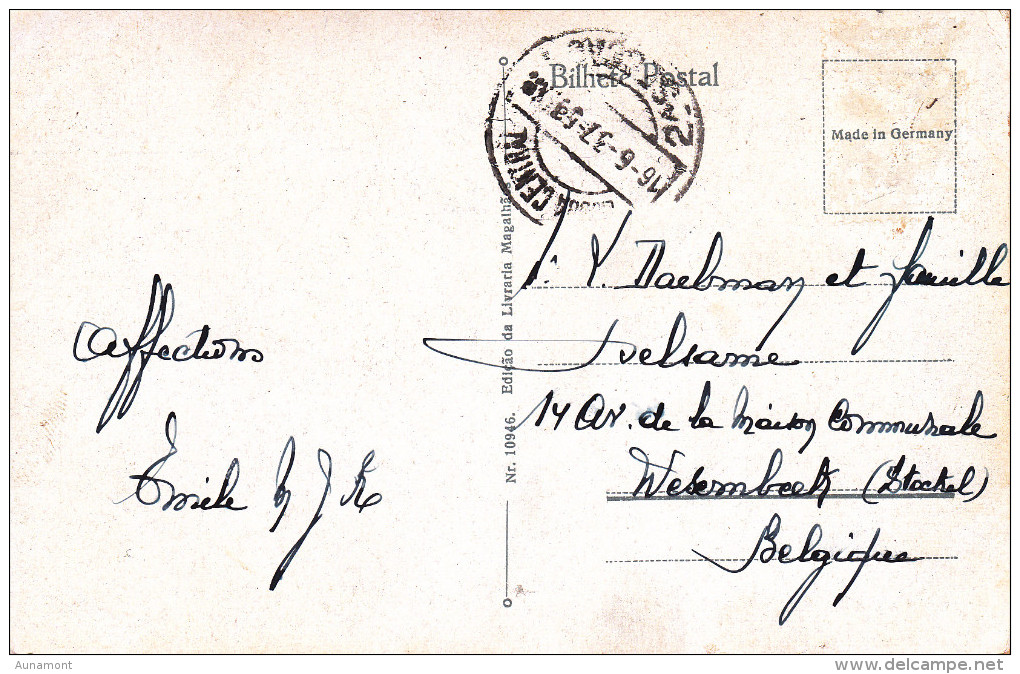 Bilhete Postal
Made in Germany
CENTRAL
16-6-37
2ª SEC
Nr. 10946. Edição da Livraria Magalhã
affections
Emile
Daelman et famille
14 Av. de la maison Communale
Wesembeek (Stockel)
Belgique
Aunamont
www.delcampe.net